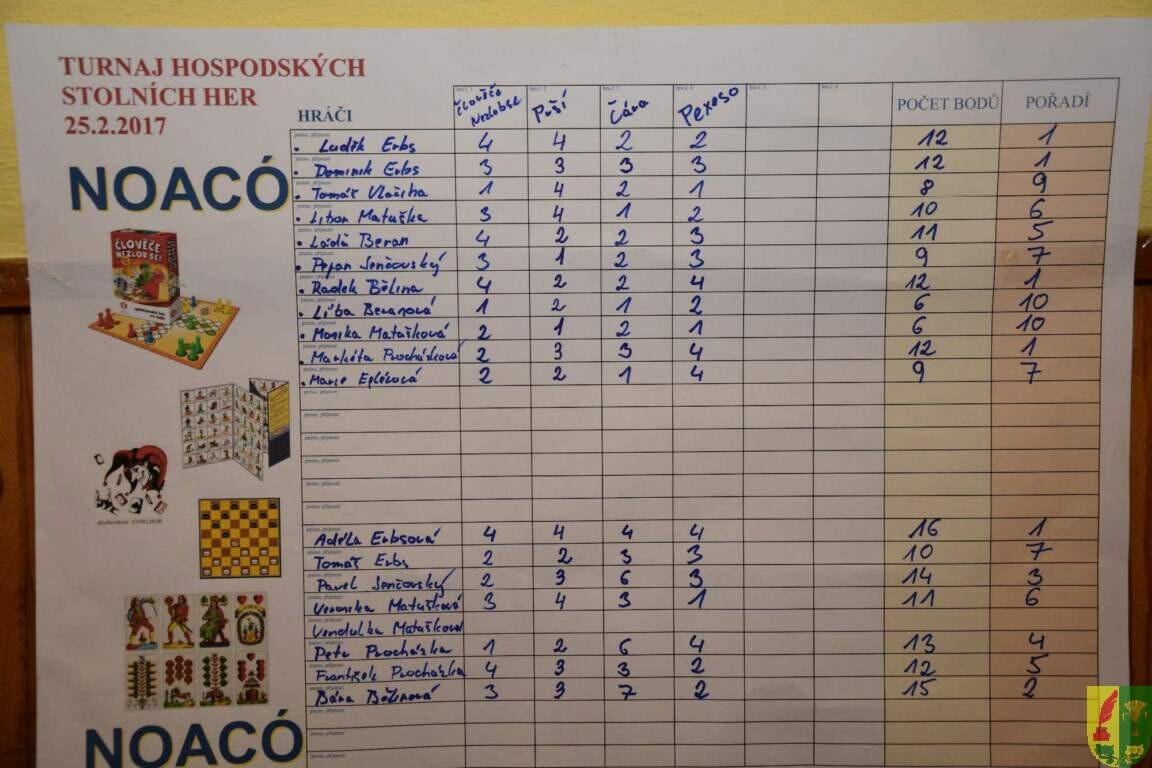 TURNAJ HOSPODSKÝCH
STOLNÍCH HER
25.2.2017
HRÁČI Člověče Nezlobse Prší Čára Pexeso POČET BODŮ POŘADÍ
NOACÓ
• Luděk Erbs 4 4 2 2 12 1
• Dominik Erbs 3 3 3 3 12 1
• Tomáš Vlačiha 1 4 2 1 8 9
• Libor Mataška 3 4 1 2 10 6
• Láďa Beran 4 2 2 3 11 5
• Pepan Senčovský 3 1 2 3 9 7
• Radek Bělina 4 2 2 4 12 1
• Líba Beranová 1 2 1 2 6 10
• Monika Matašková 2 1 2 1 6 10
• Markéta Procházková 2 3 3 4 12 1
• 2 2 1 4 9 7
ČLOVĚČE
NEZLOB SE!
Adéla Erbsová 4 4 4 4 16 1
Tomáš Erbs 2 2 3 3 10 7
Pavel Senčovský 2 3 6 3 14 3
Veronika Matašková 3 4 3 1 11 6
Vendulka Matašková
Petr Procházka 1 2 6 4 13 4
František Procházka 4 3 3 2 12 5
Bára Bělinová 3 3 7 2 15 2
NOACÓ